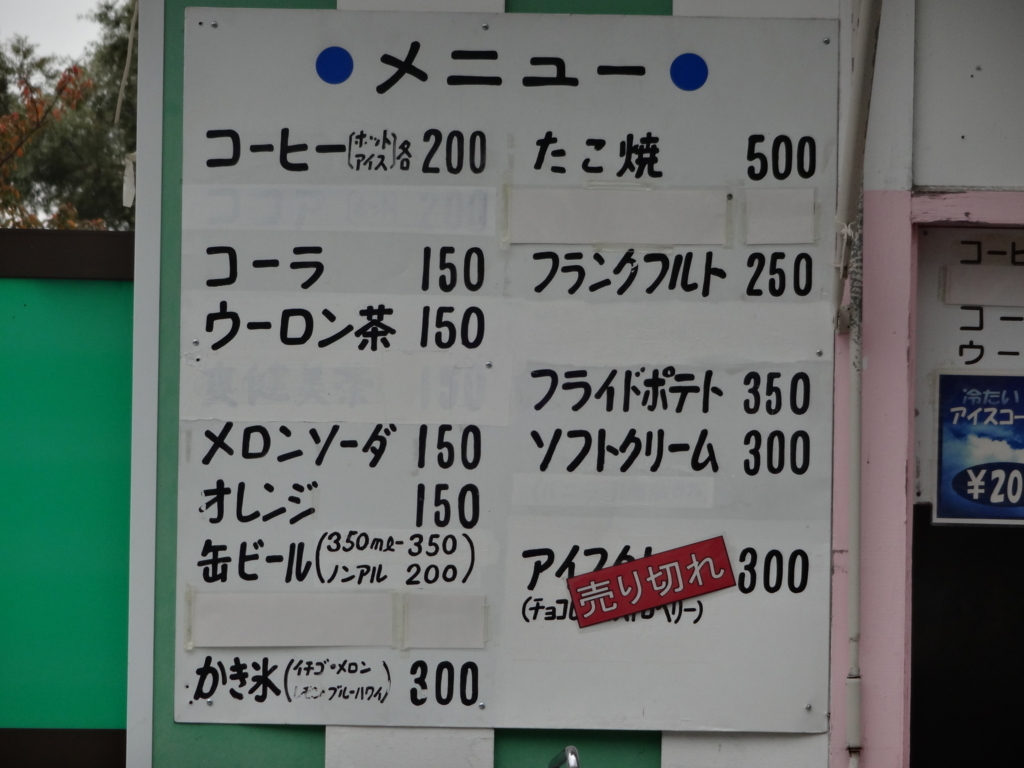 ●メニュー●
コーヒー[ホット アイス]各 200
コーラ 150
ウーロン茶 150
メロンソーダ 150
オレンジ 150
缶ビール(350ml-350 ノンアル 200)
かき氷(イチゴ・メロン レモン・ブルーハワイ) 300
たこ焼 500
フランクフルト 250
フライドポテト 350
ソフトクリーム 300
アイスク 300
売り切れ
(チョコ ベリー)
コーヒ
コー
ウー
冷たい
アイスコー
¥20